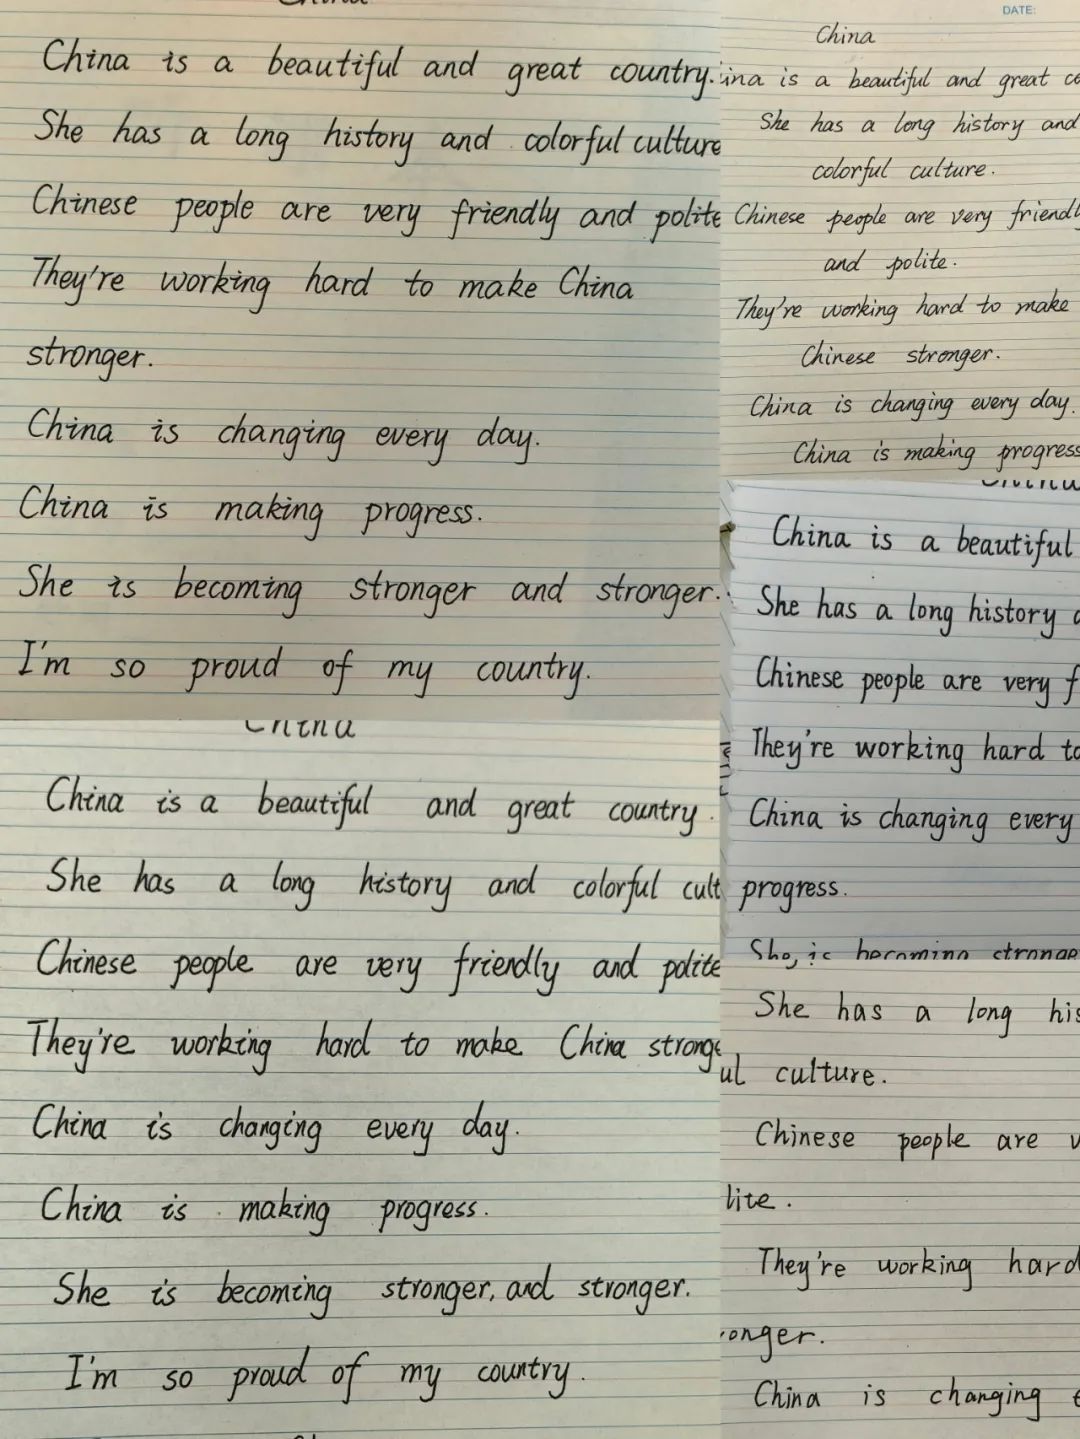 China is a beautiful and great country.
She has a long history and colorful culture
Chinese people are very friendly and polite
They're working hard to make China
stronger.
China is changing every day.
China is making progress.
She is becoming stronger and stronger.
I'm so proud of my country.
China
China is a beautiful and great country.
She has a long history and colorful cult
Chinese people are very friendly and polite
They're working hard to make China stronge
China is changing every day.
China is making progress.
She is becoming stronger, and stronger.
I'm so proud of my country.
DATE:
China
ina is a beautiful and great co
She has a long history and
colorful culture.
Chinese people are very friendl
and polite.
They're working hard to make
Chinese stronger.
China is changing every day.
China is making progress
China is a beautiful
She has a long history
Chinese people are very f
They're working hard to
China is changing every
progress.
She is becoming stronge
She has a long his
ul culture.
Chinese people are v
lite.
They're working hard
onger.
China is changing